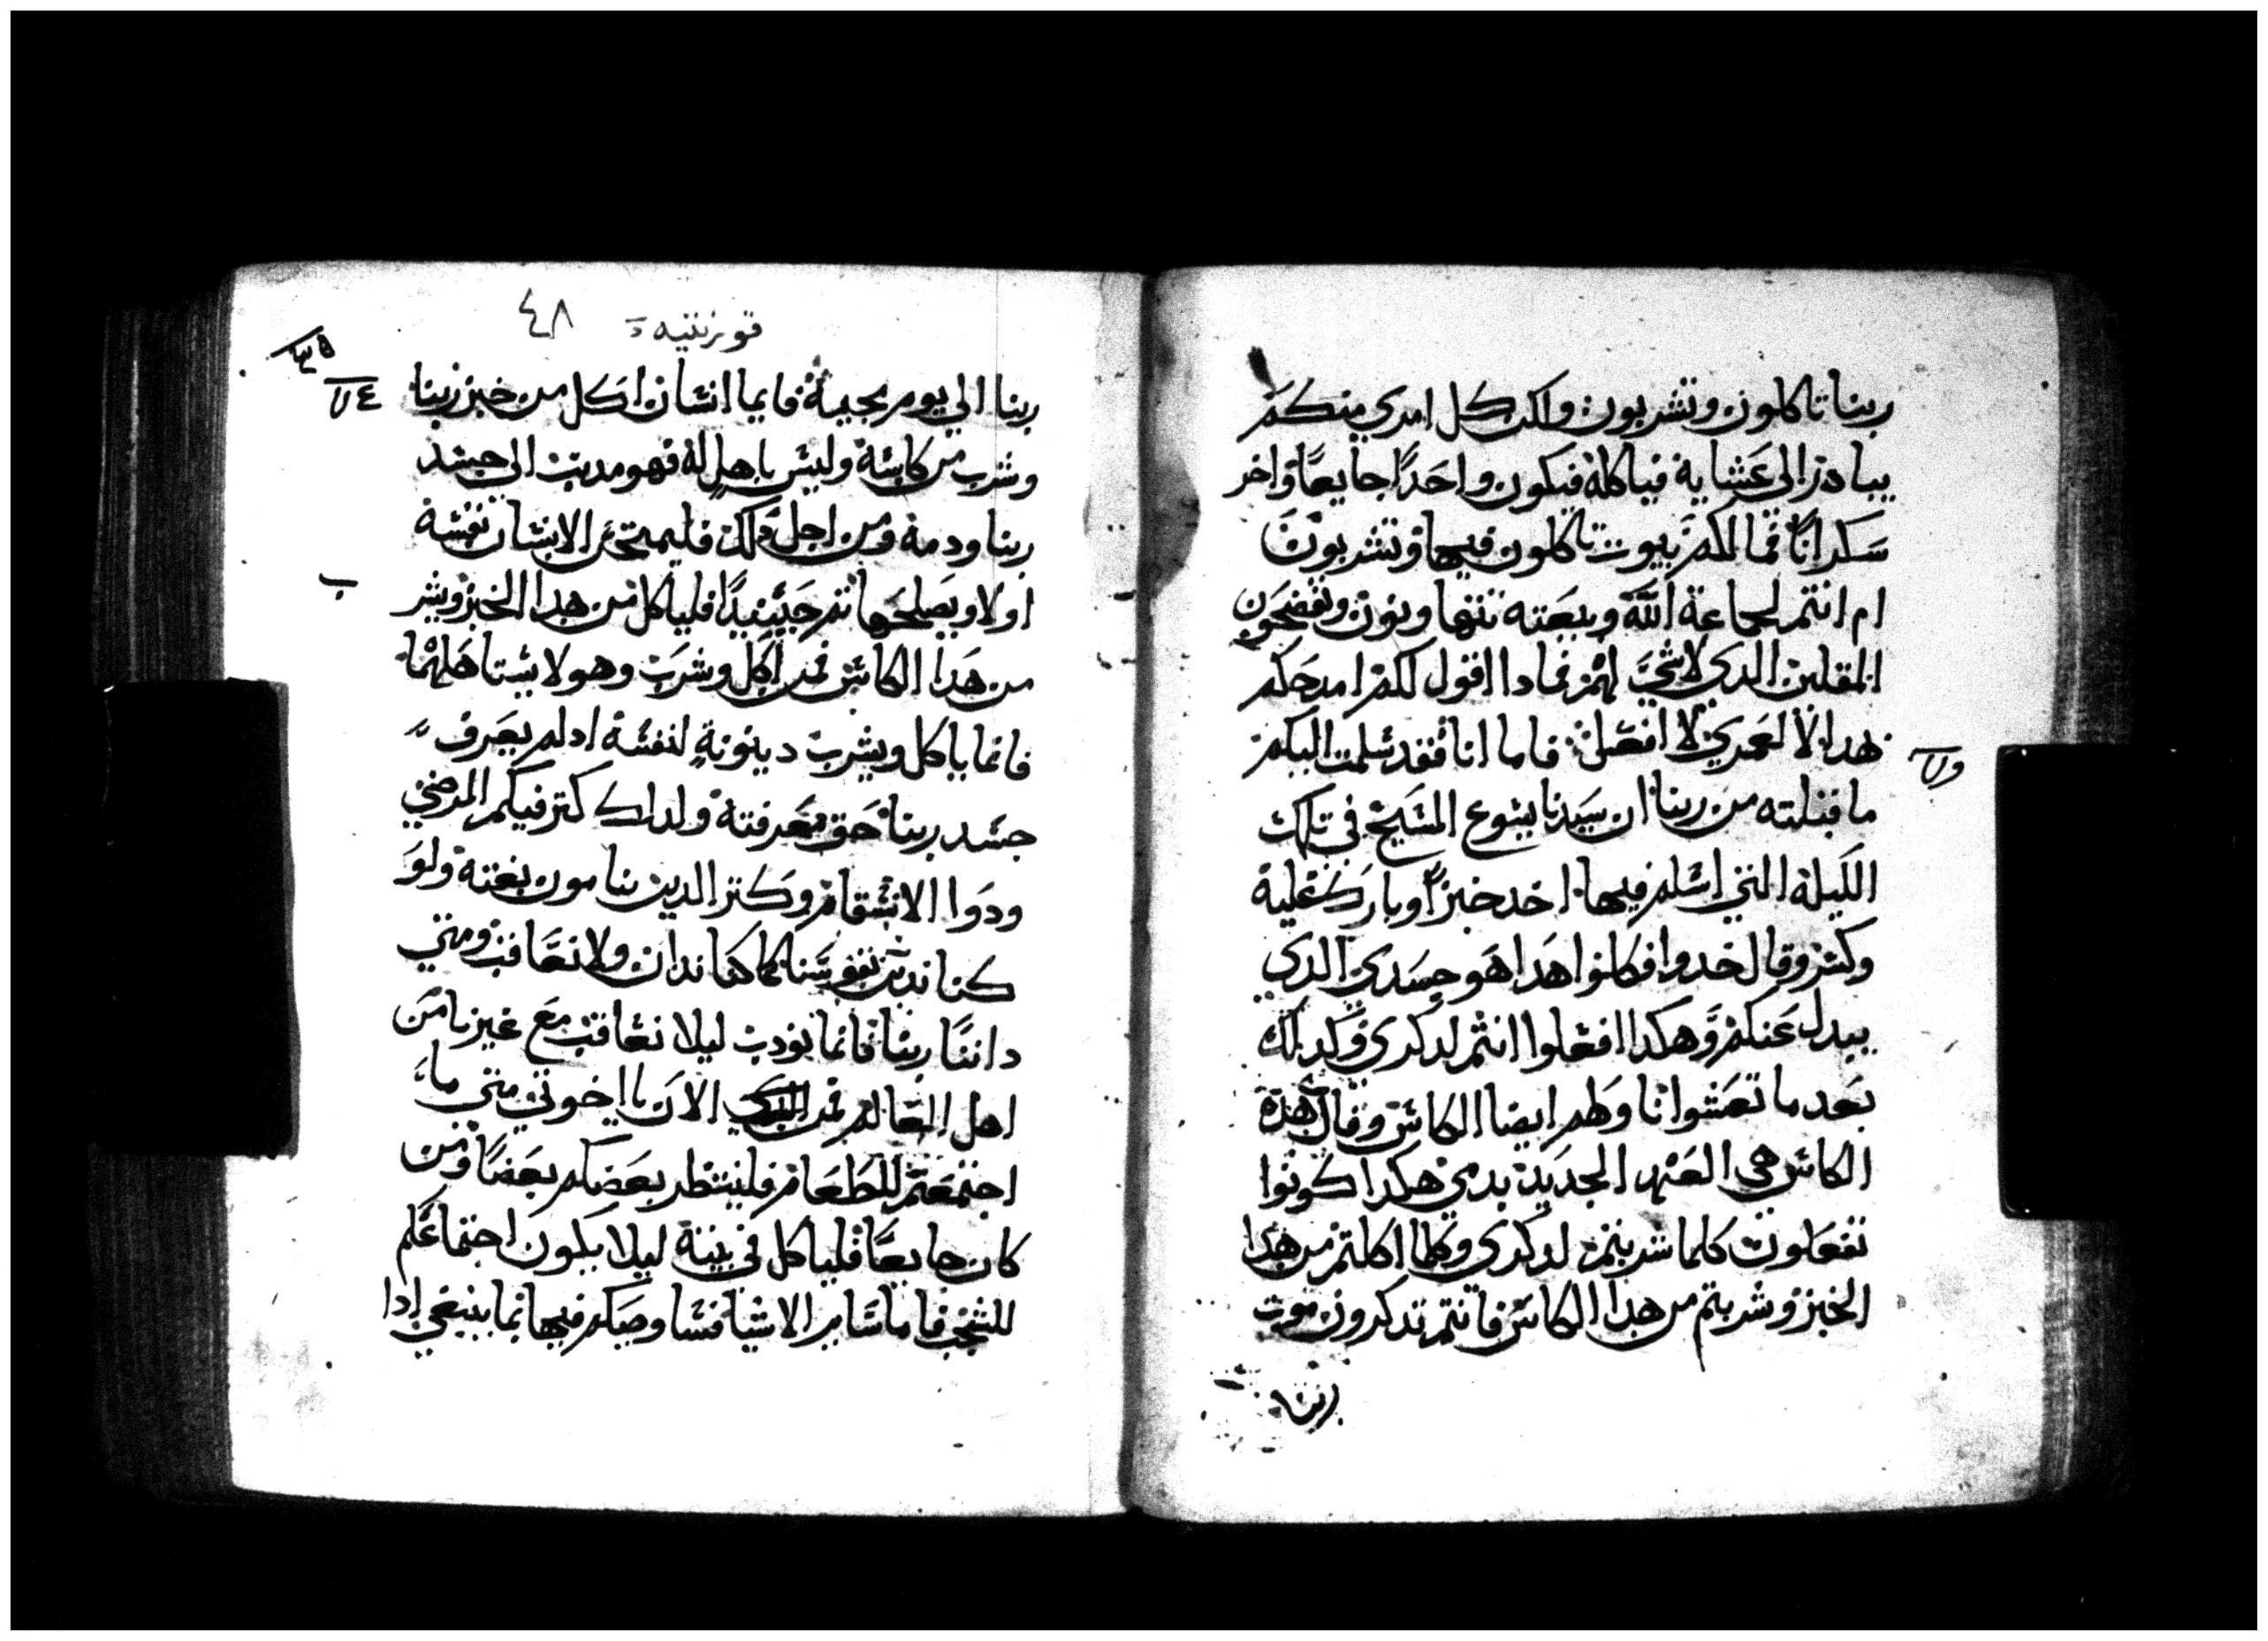 ربنا تاكلون وتشربون ولكن كل امري منكم
يبادر الى عشايه فياكله فيكون واحدًا جايعًا واخر
سكرانًا فما لكم بيوت تاكلون فيها وتشربون
ام انتم لجماعة الله وبيعته تتهاونون وتفضحون
المقلين الدي لاشي لهم فمادا اقول لكم امدحكم
بهدا لا لعمري لا افعل فاما انا فقد سلمت اليكم
ما قبلته من ربنا ان سيدنا يشوع المسيح في تلك
الليلة التي اسلم فيها اخد خبزًا وبارك عليه
وكسر وقال خدوا فكلوا هدا هو جسدي الدي
يبدل عنكم وهكدا افعلوا انتم لدكري وكدلك
بعد ما تعشوا ناولهم ايضا الكاس وقال هده
الكاس هي العهد الجديد بدمي هكدا كونوا
تفعلون كلما شربتم لدكري وكلما اكلتم من هدا
الخبز وشربتم من هدا الكاس فانتم تدكرون موت
ربنا
قورنتيه
٤٨
ربنا الى يوم يجيه فايما انسان اكل من خبز ربنا
وشرب من كاسه وليس باهل له فهو مدنب الى جسد
ربنا ودمه ومن اجل دلك فليمتحن الانسان نفسه
اولا ويصلحها تم حينيدًا فلياكل من هدا الخبز ويشر
ب
من هدا الكاس فمن اكل وشرب وهو لا يستاهلهما
فانما ياكل ويشرب دينونة لنفسه ادلم يعرف
جسد ربنا حق معرفته ولداك كتر فيكم المرضي
ودوا الاسقام وكتر الدين ينامون بغته ولو
كنا ندين نفوسنا لما كنا ندان ولا نعاقب ومتي
داننا ربنا فانما نودب ليلا نعاقب مع غيرنا من
اهل العالم فمن الان يا اخوتي متي ما
اجتمعتم للطعام فلينتظر بعضكم بعضًا ومن
كان جايعًا فلياكل في بيته ليلا يكون اجتماعكم
للشجب فاما ساير الاشيا فسا وصيكم فيها بما ينبغي ادا